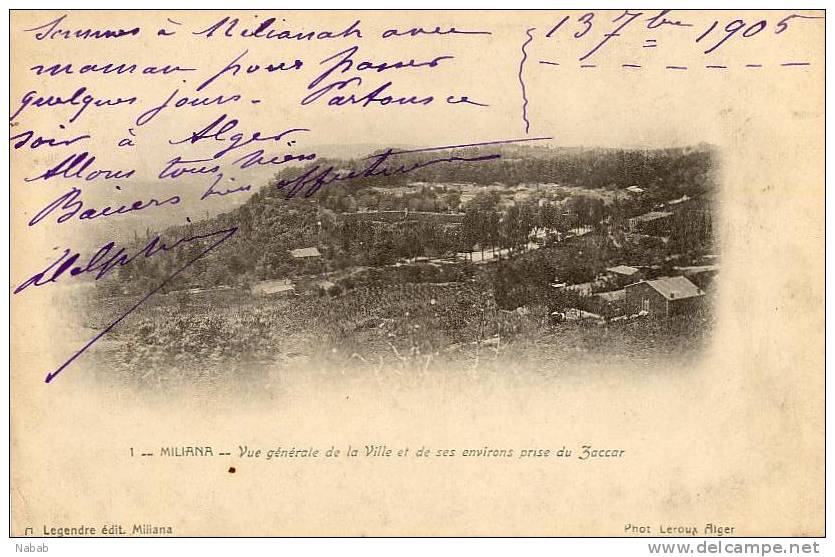 Sommes à Milianah avec
maman pour passer
quelques jours. Partons ce
soir à Alger
Allons tous bien
Baisers bien affectueux
Delphin
13 7bre 1905
1 -- MILIANA -- Vue générale de la Ville et de ses environs prise du Zaccar
A Legendre édit. Miliana
Phot Leroux Alger
Nabab
www.delcampe.net